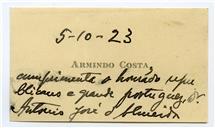 5-10-23
ARMINDO COSTA
cumprimenta o honrado repu
blicano e grande portuguez, dr.
Antonio José d'Almeida